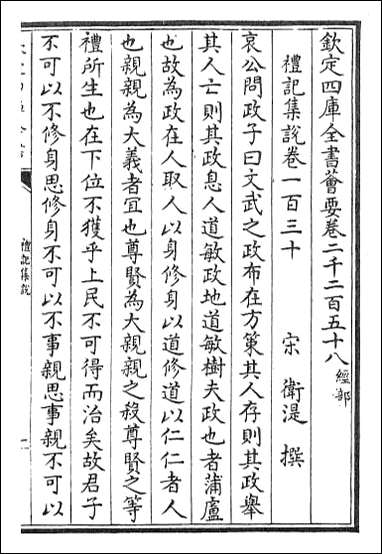 欽定四庫全書薈要卷二千二百五十八 經部
禮記集說卷一百三十 宋 衛湜 撰
哀公問政子曰文武之政布在方策其人存則其政舉
其人亡則其政息人道敏政地道敏樹夫政也者蒲盧
也故為政在人取人以身修身以道修道以仁仁者人
也親親為大義者宜也尊賢為大親親之殺尊賢之等
禮所生也在下位不獲乎上民不可得而治矣故君子
不可以不修身思修身不可以不事親思事親不可以
禮記集說
一